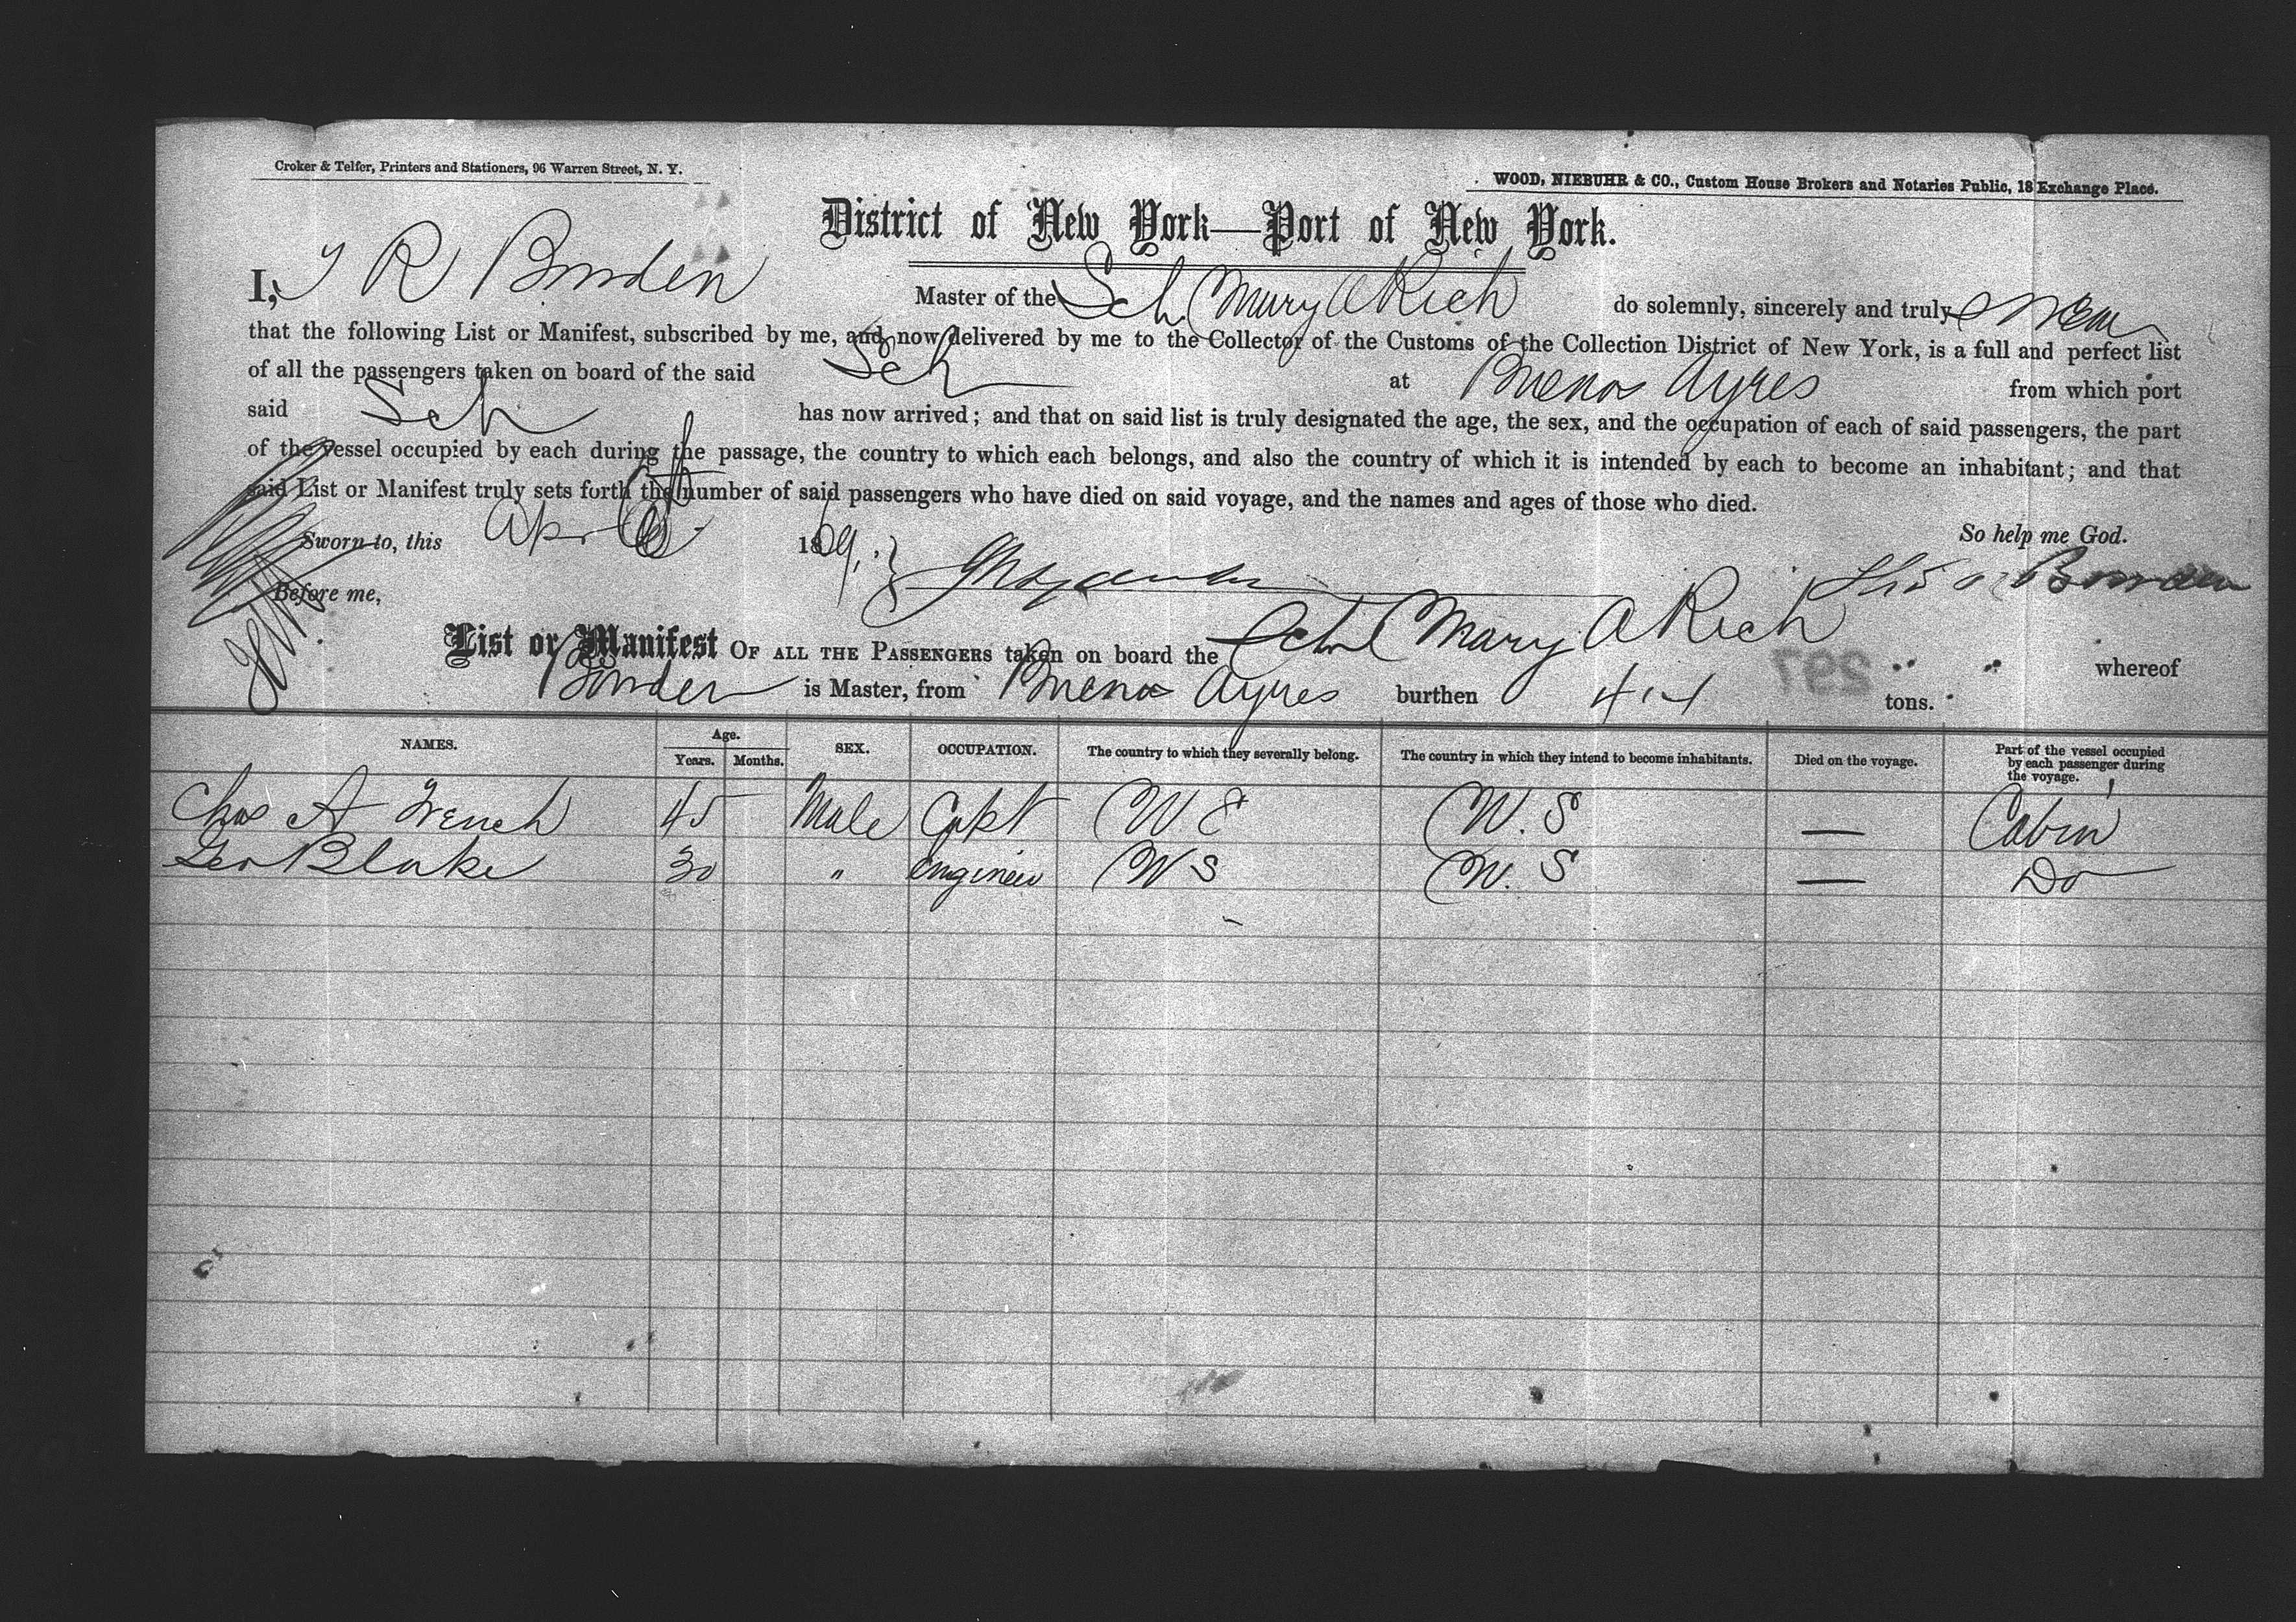 Croker & Telfer, Printers and Stationers, 96 Warren Street, N. Y.
WOOD, NIEBUHR & CO., Custom House Brokers and Notaries Public, 18 Exchange Place.
District of New York—Port of New York.
I, T R Borden Master of the Sch Mary A Rich do solemnly, sincerely and truly swear
that the following List or Manifest, subscribed by me, and now delivered by me to the Collector of the Customs of the Collection District of New York, is a full and perfect list
of all the passengers taken on board of the said Sch at Buenos Ayres from which port
said Sch has now arrived; and that on said list is truly designated the age, the sex, and the occupation of each of said passengers, the part
of the vessel occupied by each during the passage, the country to which each belongs, and also the country of which it is intended by each to become an inhabitant; and that
said List or Manifest truly sets forth the number of said passengers who have died on said voyage, and the names and ages of those who died.
Sworn to, this Apr 1869, So help me God.
Before me, Borden
List or Manifest OF ALL THE PASSENGERS taken on board the Schr Mary A Rich whereof
Borden is Master, from Buenos Ayres burthen 414 tons.
297
NAMES. Age. Years. Months. SEX. OCCUPATION. The country to which they severally belong. The country in which they intend to become inhabitants. Died on the voyage. Part of the vessel occupied by each passenger during the voyage.
Chas A French 45 Male Capt U S U. S — Cabin
Geo Blake 30 " Engineer U S U. S — Do